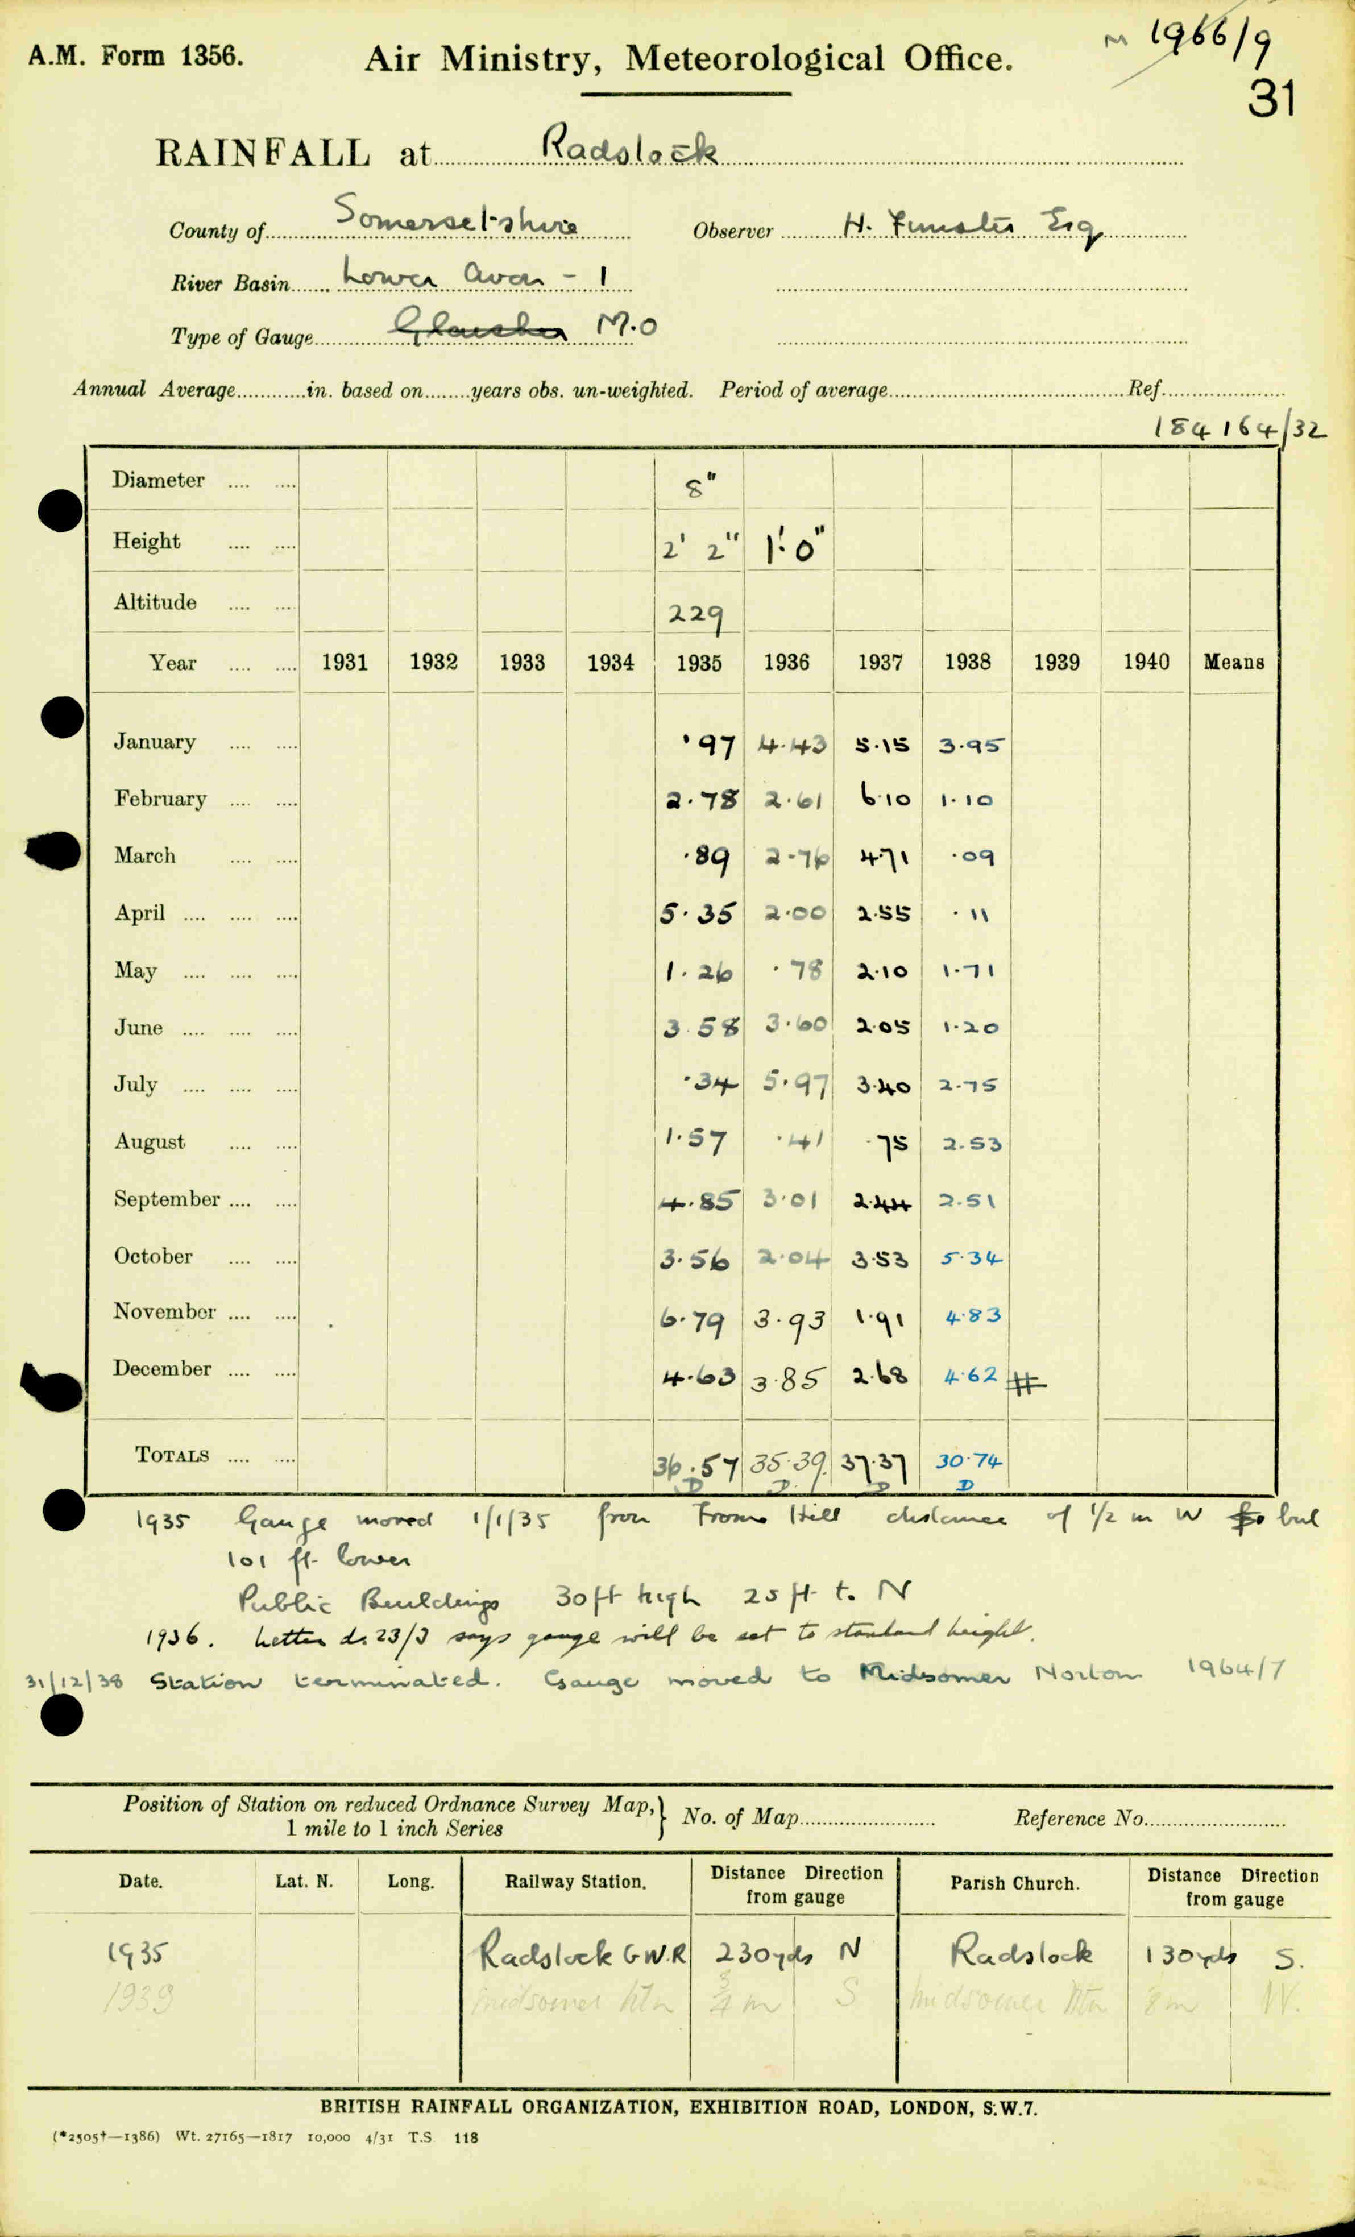 M 1966/9
A.M. Form 1356. Air Ministry, Meteorological Office.
31
RAINFALL at Radstock
County of Somersetshire Observer H. Esq
River Basin Lower Avon - 1
Type of Gauge Glaisher M.O
Annual Average............in. based on........years obs. un-weighted. Period of average........................................Ref.....................
184164/32
Diameter .... .... 8"
Height .... .... 2' 2" 1' 0"
Altitude .... .... 229
Year .... .... 1931 1932 1933 1934 1935 1936 1937 1938 1939 1940 Means
January .... .... ·97 4·43 5·15 3·95
February .... .... 2·78 2·61 6·10 1·10
March .... .... ·89 2·76 4·71 ·09
April .... .... .... 5·35 2·00 2·55 ·11
May .... .... .... 1·26 ·78 2·10 1·71
June .... .... .... 3·58 3·60 2·05 1·20
July .... .... .... ·34 5·97 3·40 2·75
August .... .... 1·57 ·41 ·75 2·53
September .... .... 4·85 3·01 2·44 2·51
October .... .... 3·56 2·04 3·53 5·34
November .... .... 6·79 3·93 1·91 4·83
December .... .... 4·63 3·85 2·68 4·62 #
TOTALS .... .... 36.57 35·39 37·37 30·74
D D D D
1935 Gauge moved 1/1/35 from Frome Hill distance of 1/2 m W but
101 ft lower
Public Buildings 30ft high 25 ft to N
1936. Letter d. 23/3 says gauge will be set to standard height.
31/12/38 Station terminated. Gauge moved to Midsomer Norton 1964/7
Position of Station on reduced Ordnance Survey Map,} No. of Map........................ Reference No.........................
1 mile to 1 inch Series
Date. Lat. N. Long. Railway Station. Distance Direction Parish Church. Distance Direction
from gauge from gauge
1935 Radstock G.W.R 230yds N Radstock 130yds S.
1939 Midsomer Ntn 3/4 m S Midsomer Ntn W.
BRITISH RAINFALL ORGANIZATION, EXHIBITION ROAD, LONDON, S.W.7.
(*2505†—1386) Wt. 27165—1817 10,000 4/31 T.S. 118